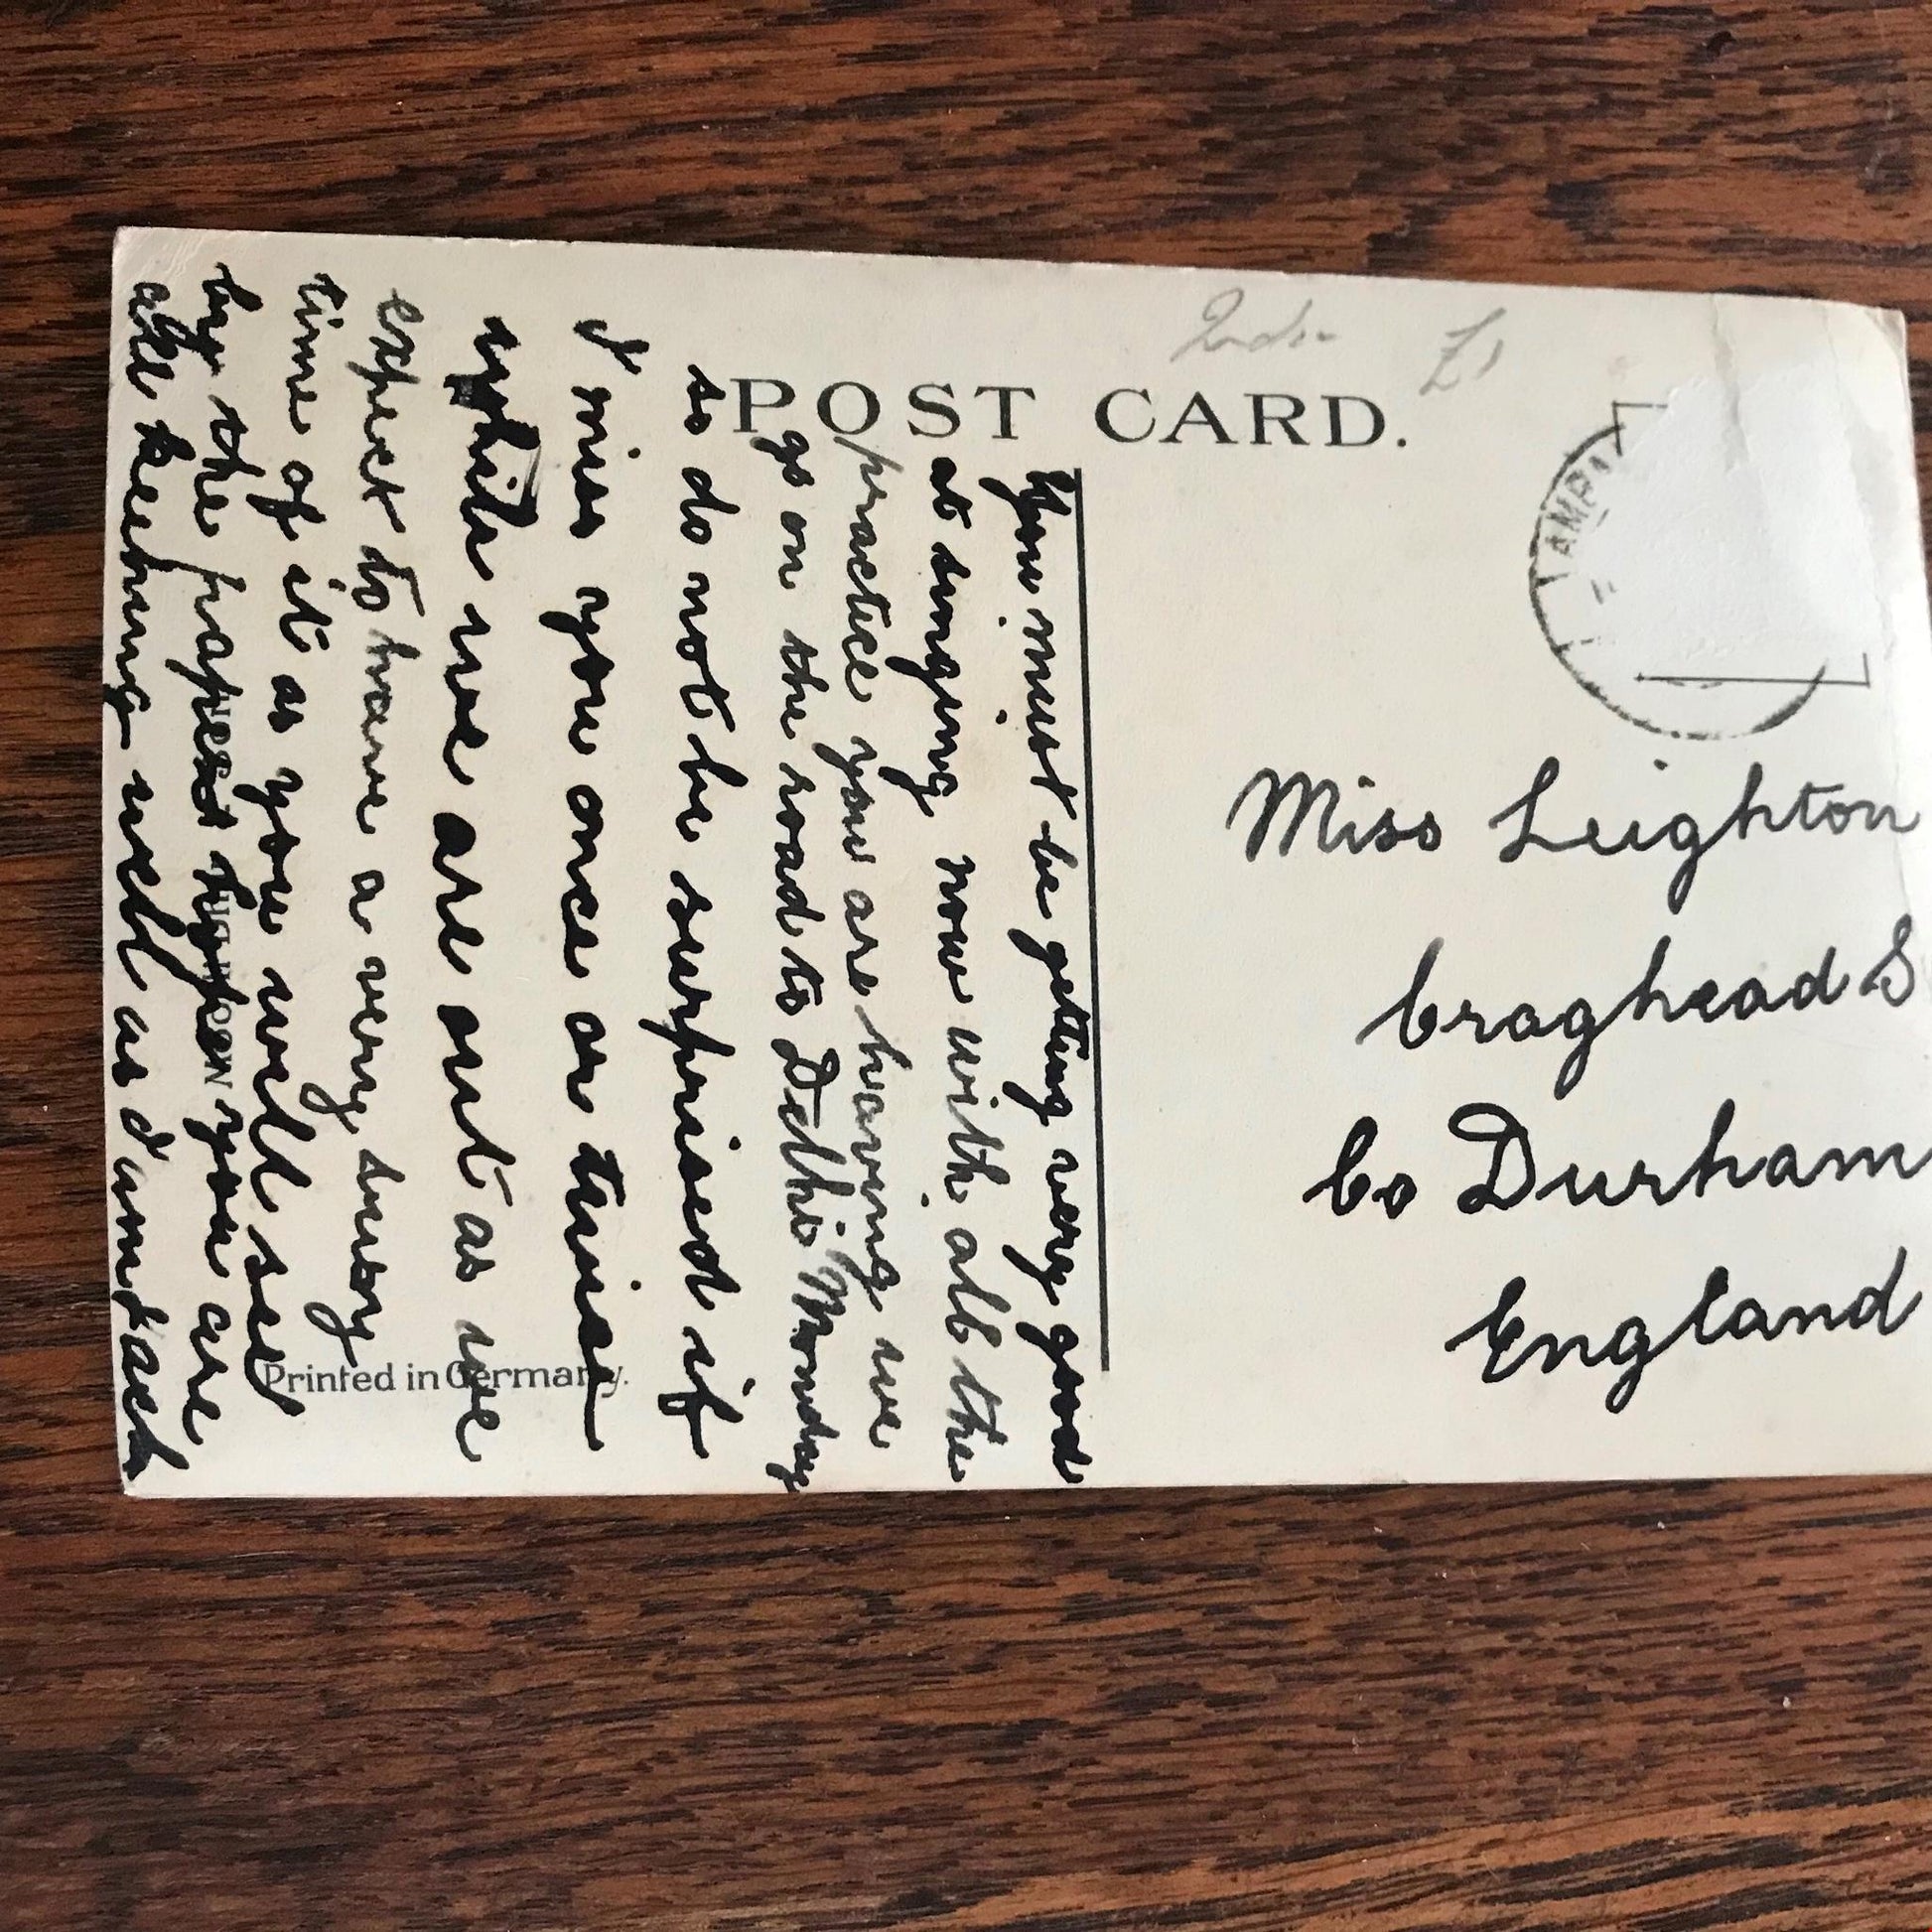 India £1
POST CARD.
AMP
You must be getting very good
at singing now with all the
practice you are having we
go on the road to Delhi Monday
so do not be surprised if
I miss you once or twice
while we are out as we
expect to have a very busy
time of it as you will see
by the papers hopen you are
all keeping well as I am
Printed in Germany.
Miss Leighton
Craghead S
Co Durham
England